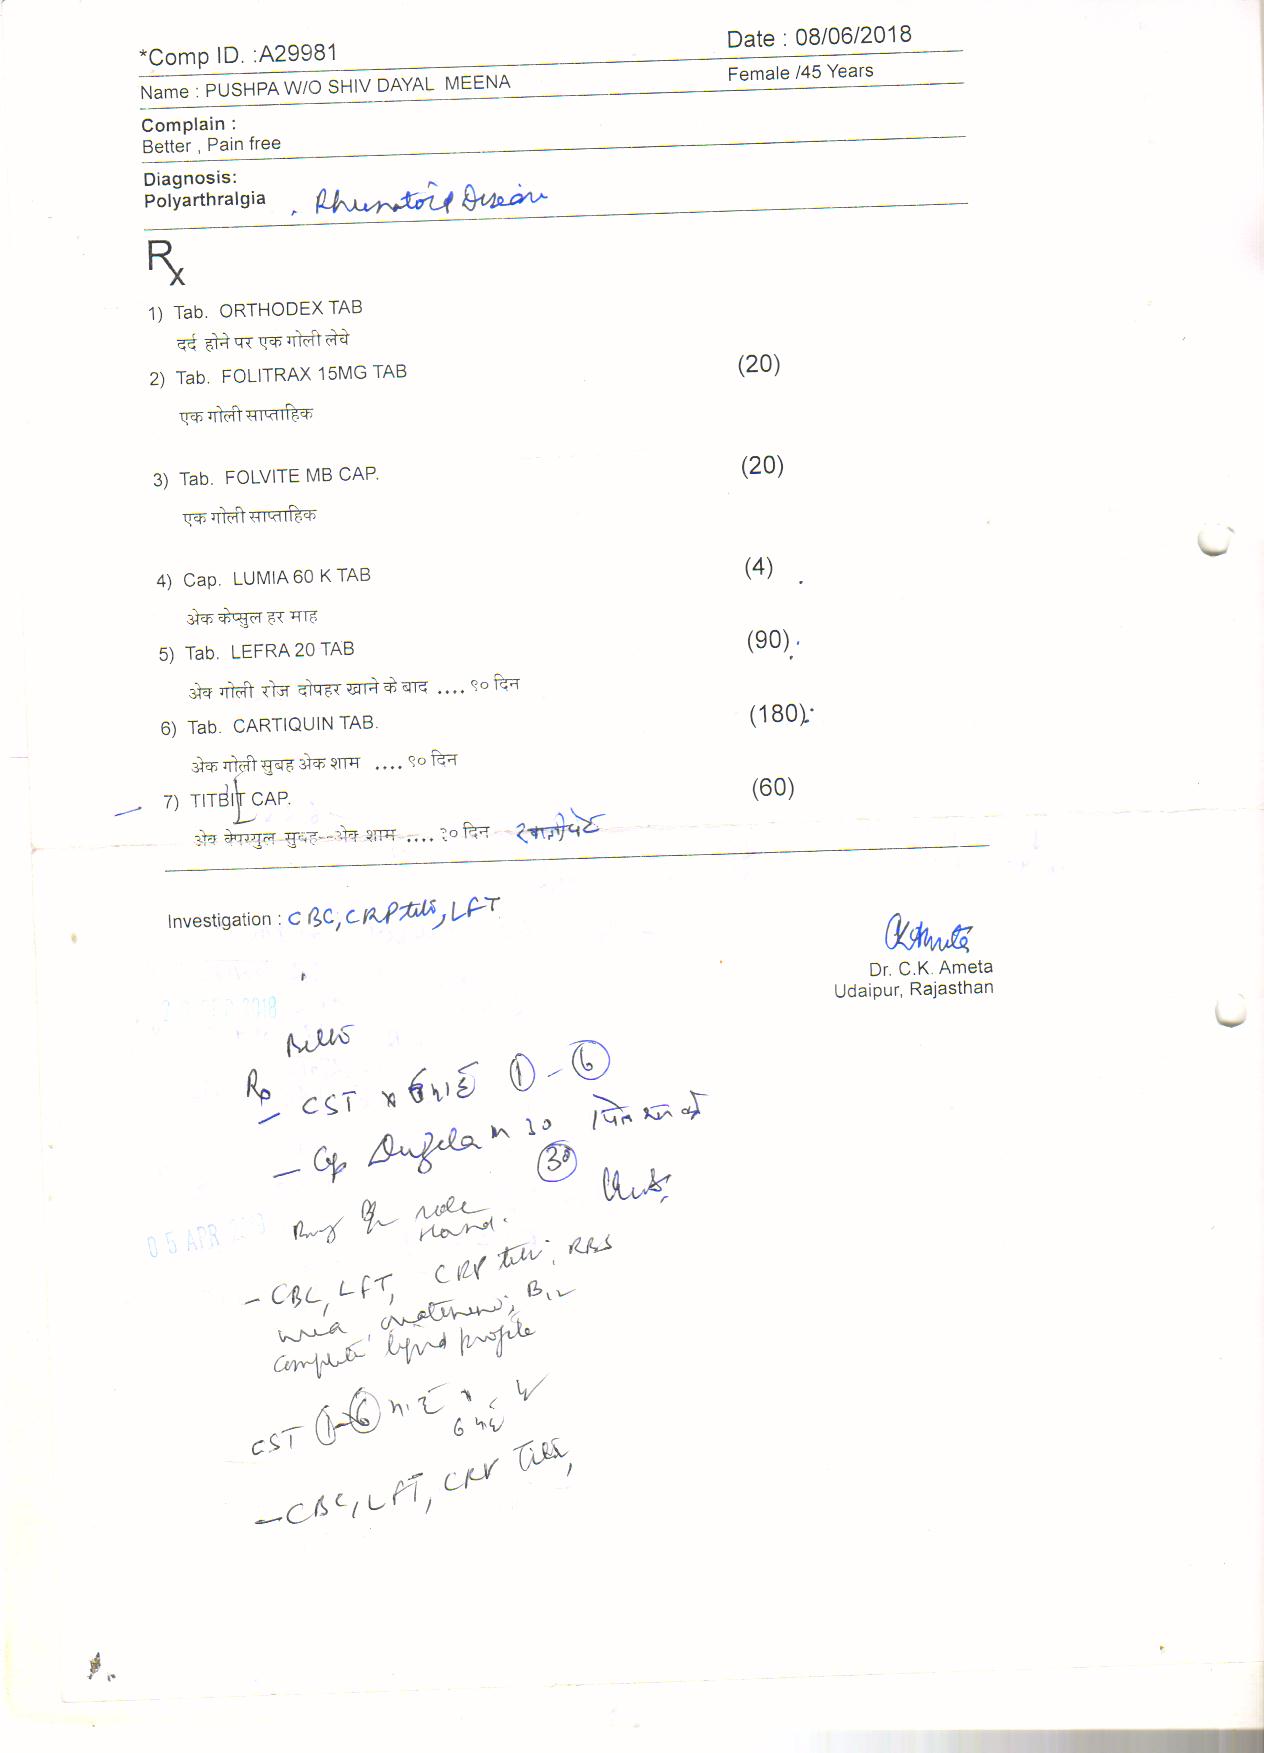 *Comp ID. :A29981 Date : 08/06/2018
Name : PUSHPA W/O SHIV DAYAL MEENA Female /45 Years
Complain :
Better , Pain free
Diagnosis:
Polyarthralgia , Rhumatoid Disease
Rx
1) Tab. ORTHODEX TAB
दर्द होने पर एक गोली लेवे
2) Tab. FOLITRAX 15MG TAB (20)
एक गोली साप्ताहिक
3) Tab. FOLVITE MB CAP. (20)
एक गोली साप्ताहिक
4) Cap. LUMIA 60 K TAB (4)
अेक केप्सुल हर माह
5) Tab. LEFRA 20 TAB (90)
अेक गोली रोज दोपहर खाने के बाद .... ९० दिन
6) Tab. CARTIQUIN TAB. (180)
अेक गोली सुबह अेक शाम .... ९० दिन
7) TITBIT CAP. (60)
अेक केपस्युल सुबह--अेक शाम .... ३० दिन
Investigation : CBC, CRP titre, LFT
Dr. C.K. Ameta
Udaipur, Rajasthan
2018
Better
Rp
- CST x 6 माह 1 - 6
- Cap 30
30
05 APR
hand.
- CBC, LFT, CRP titre, RBS
urea, creatinine, B12
complete lipid profile
CST 1-6
6 माह
- CBC, LFT, CRP titre,